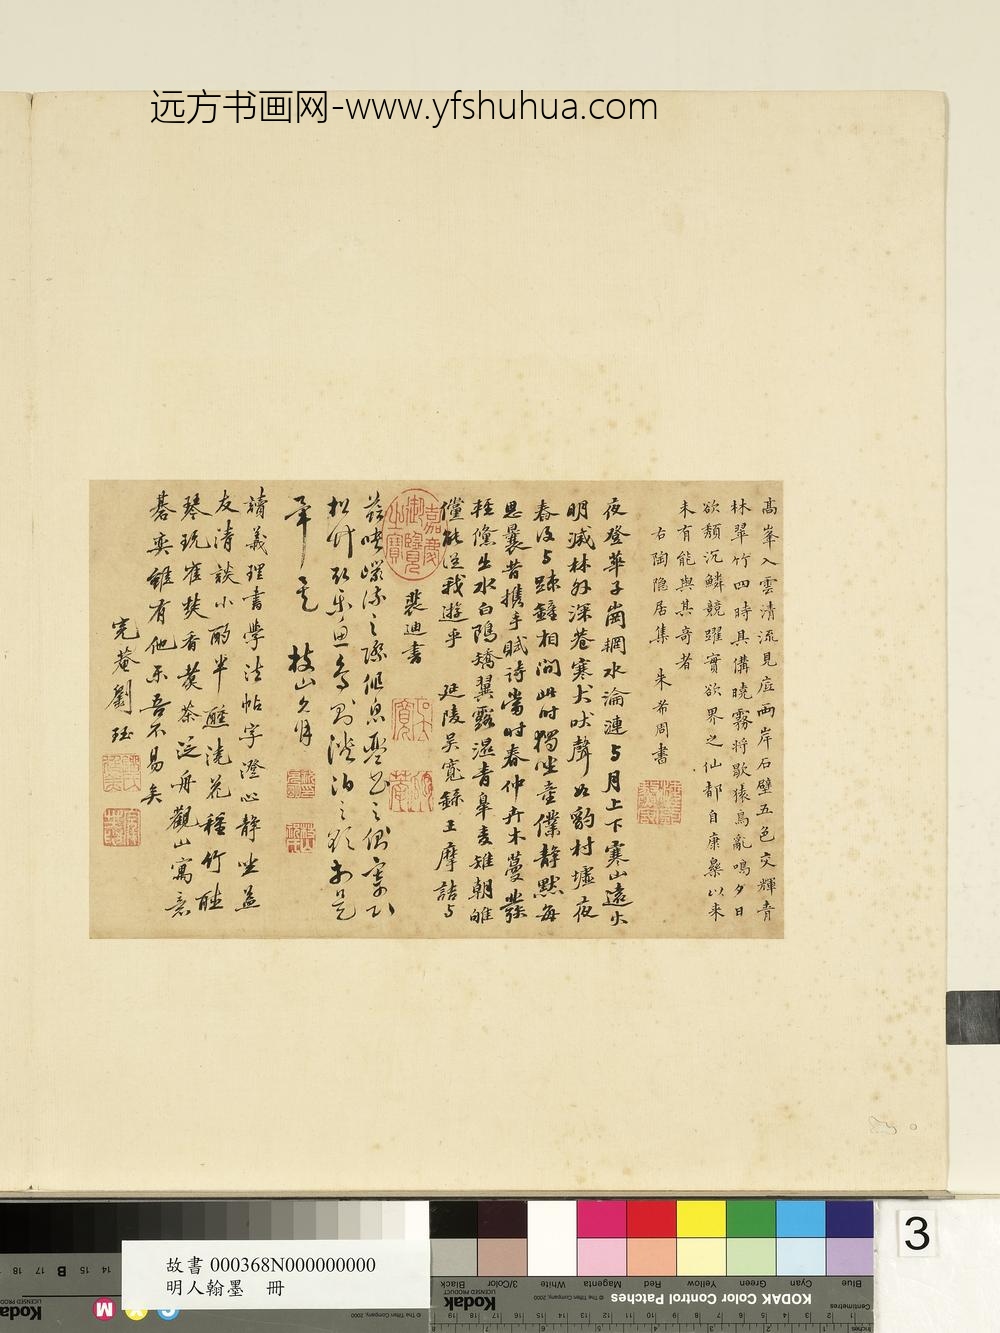 远方书画网-www.yfshuhua.com
高峯入雲清流見底兩岸石壁五色交輝青
林翠竹四時具備曉霧將歇猿鳥亂鳴夕日
欲頽沉鱗競躍實欲界之仙都自康樂以来
未有能與其奇者
右陶隐居集 朱希周書
夜登華子崗輞水淪漣与月上下寒山遠火
明滅林外深巷寒犬吠聲如豹村墟夜
舂復与踈鐘相間此時獨坐童僕静默每
思曩昔携手賦诗當时春仲卉木蔓發
輕儵出水白鴎矯翼露濕青皋麦雉朝雊
儻能從我遊乎 延陵吴寛錄王摩詰与
裴迪書
嘉慶御覽之寶
枝山
讀義理書學法帖字澄心静坐益
友清談小酌半醺澆花種竹聽
琴玩雀焚香煑茶泛舟觀山寓意
碁奕雖有他乐吾不易矣
完菴劉珏
故書 000368N000000000
明人翰墨 冊
3
Blue
Cyan
Green
Yellow
Red
Magenta
White
3/Color
Black
KODAK Color Control Patches
© The Tiffen Company, 2000
Kodak
LICENSED PRODUCT
Centimetres
Inches
B
M
Y
C